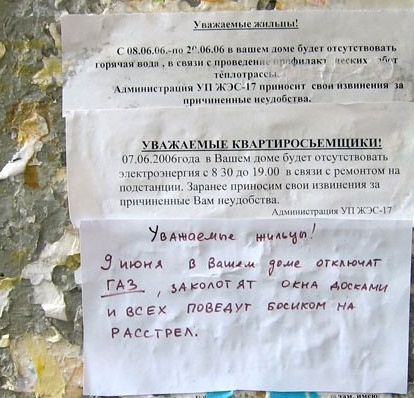 Уважаемые жильцы!
С 08.06.06.-по 28.06.06 в вашем доме будет отсутствовать
горячая вода , в связи с проведение профилакт ческих абот
теплотрассы.
Администрация УП ЖЭС-17 приносит свои извинения за
причиненные неудобства.
УВАЖАЕМЫЕ КВАРТИРОСЬЕМЩИКИ!
07.06.2006года в Вашем доме будет отсутствовать
электроэнергия с 8 30 до 19.00 в связи с ремонтом на
подстанции. Заранее приносим свои извинения за
причиненные Вам неудобства.
Администрация УП ЖЭС-17
Уважаемые жильцы!
9 июня в Вашем доме отключат
ГАЗ , заколотят окна досками
и всех поведут босиком на
расстрел.